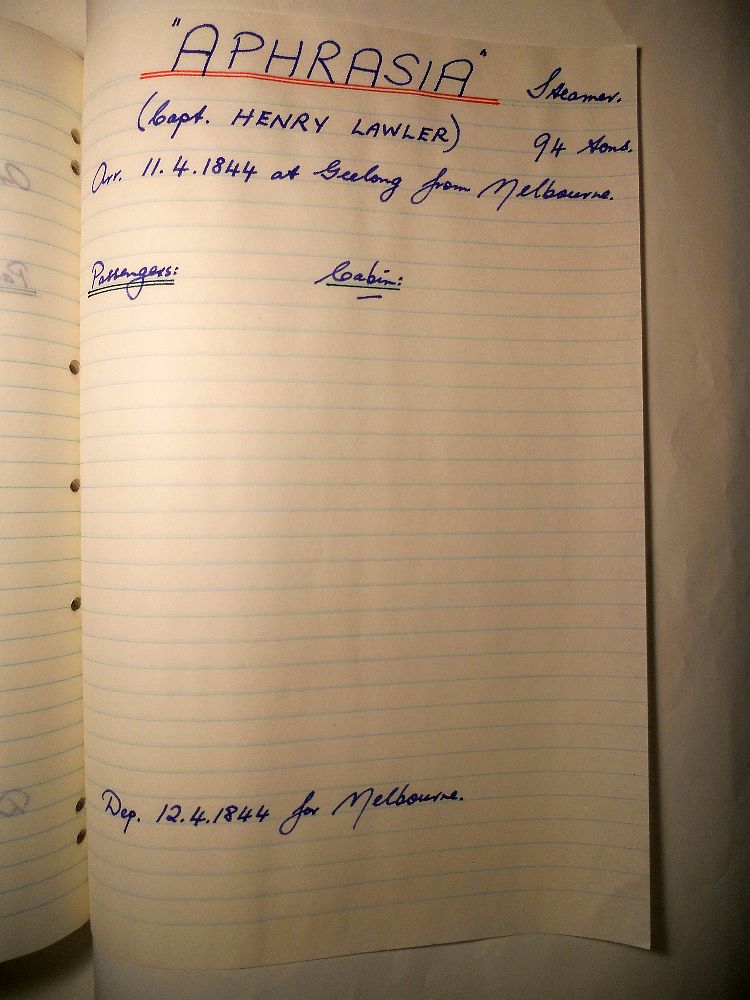 "APHRASIA" Steamer.
(Capt. HENRY LAWLER) 94 tons.
Arr. 11.4.1844 at Geelong from Melbourne.
Passengers: Cabin:
Dep. 12.4.1844 for Melbourne.